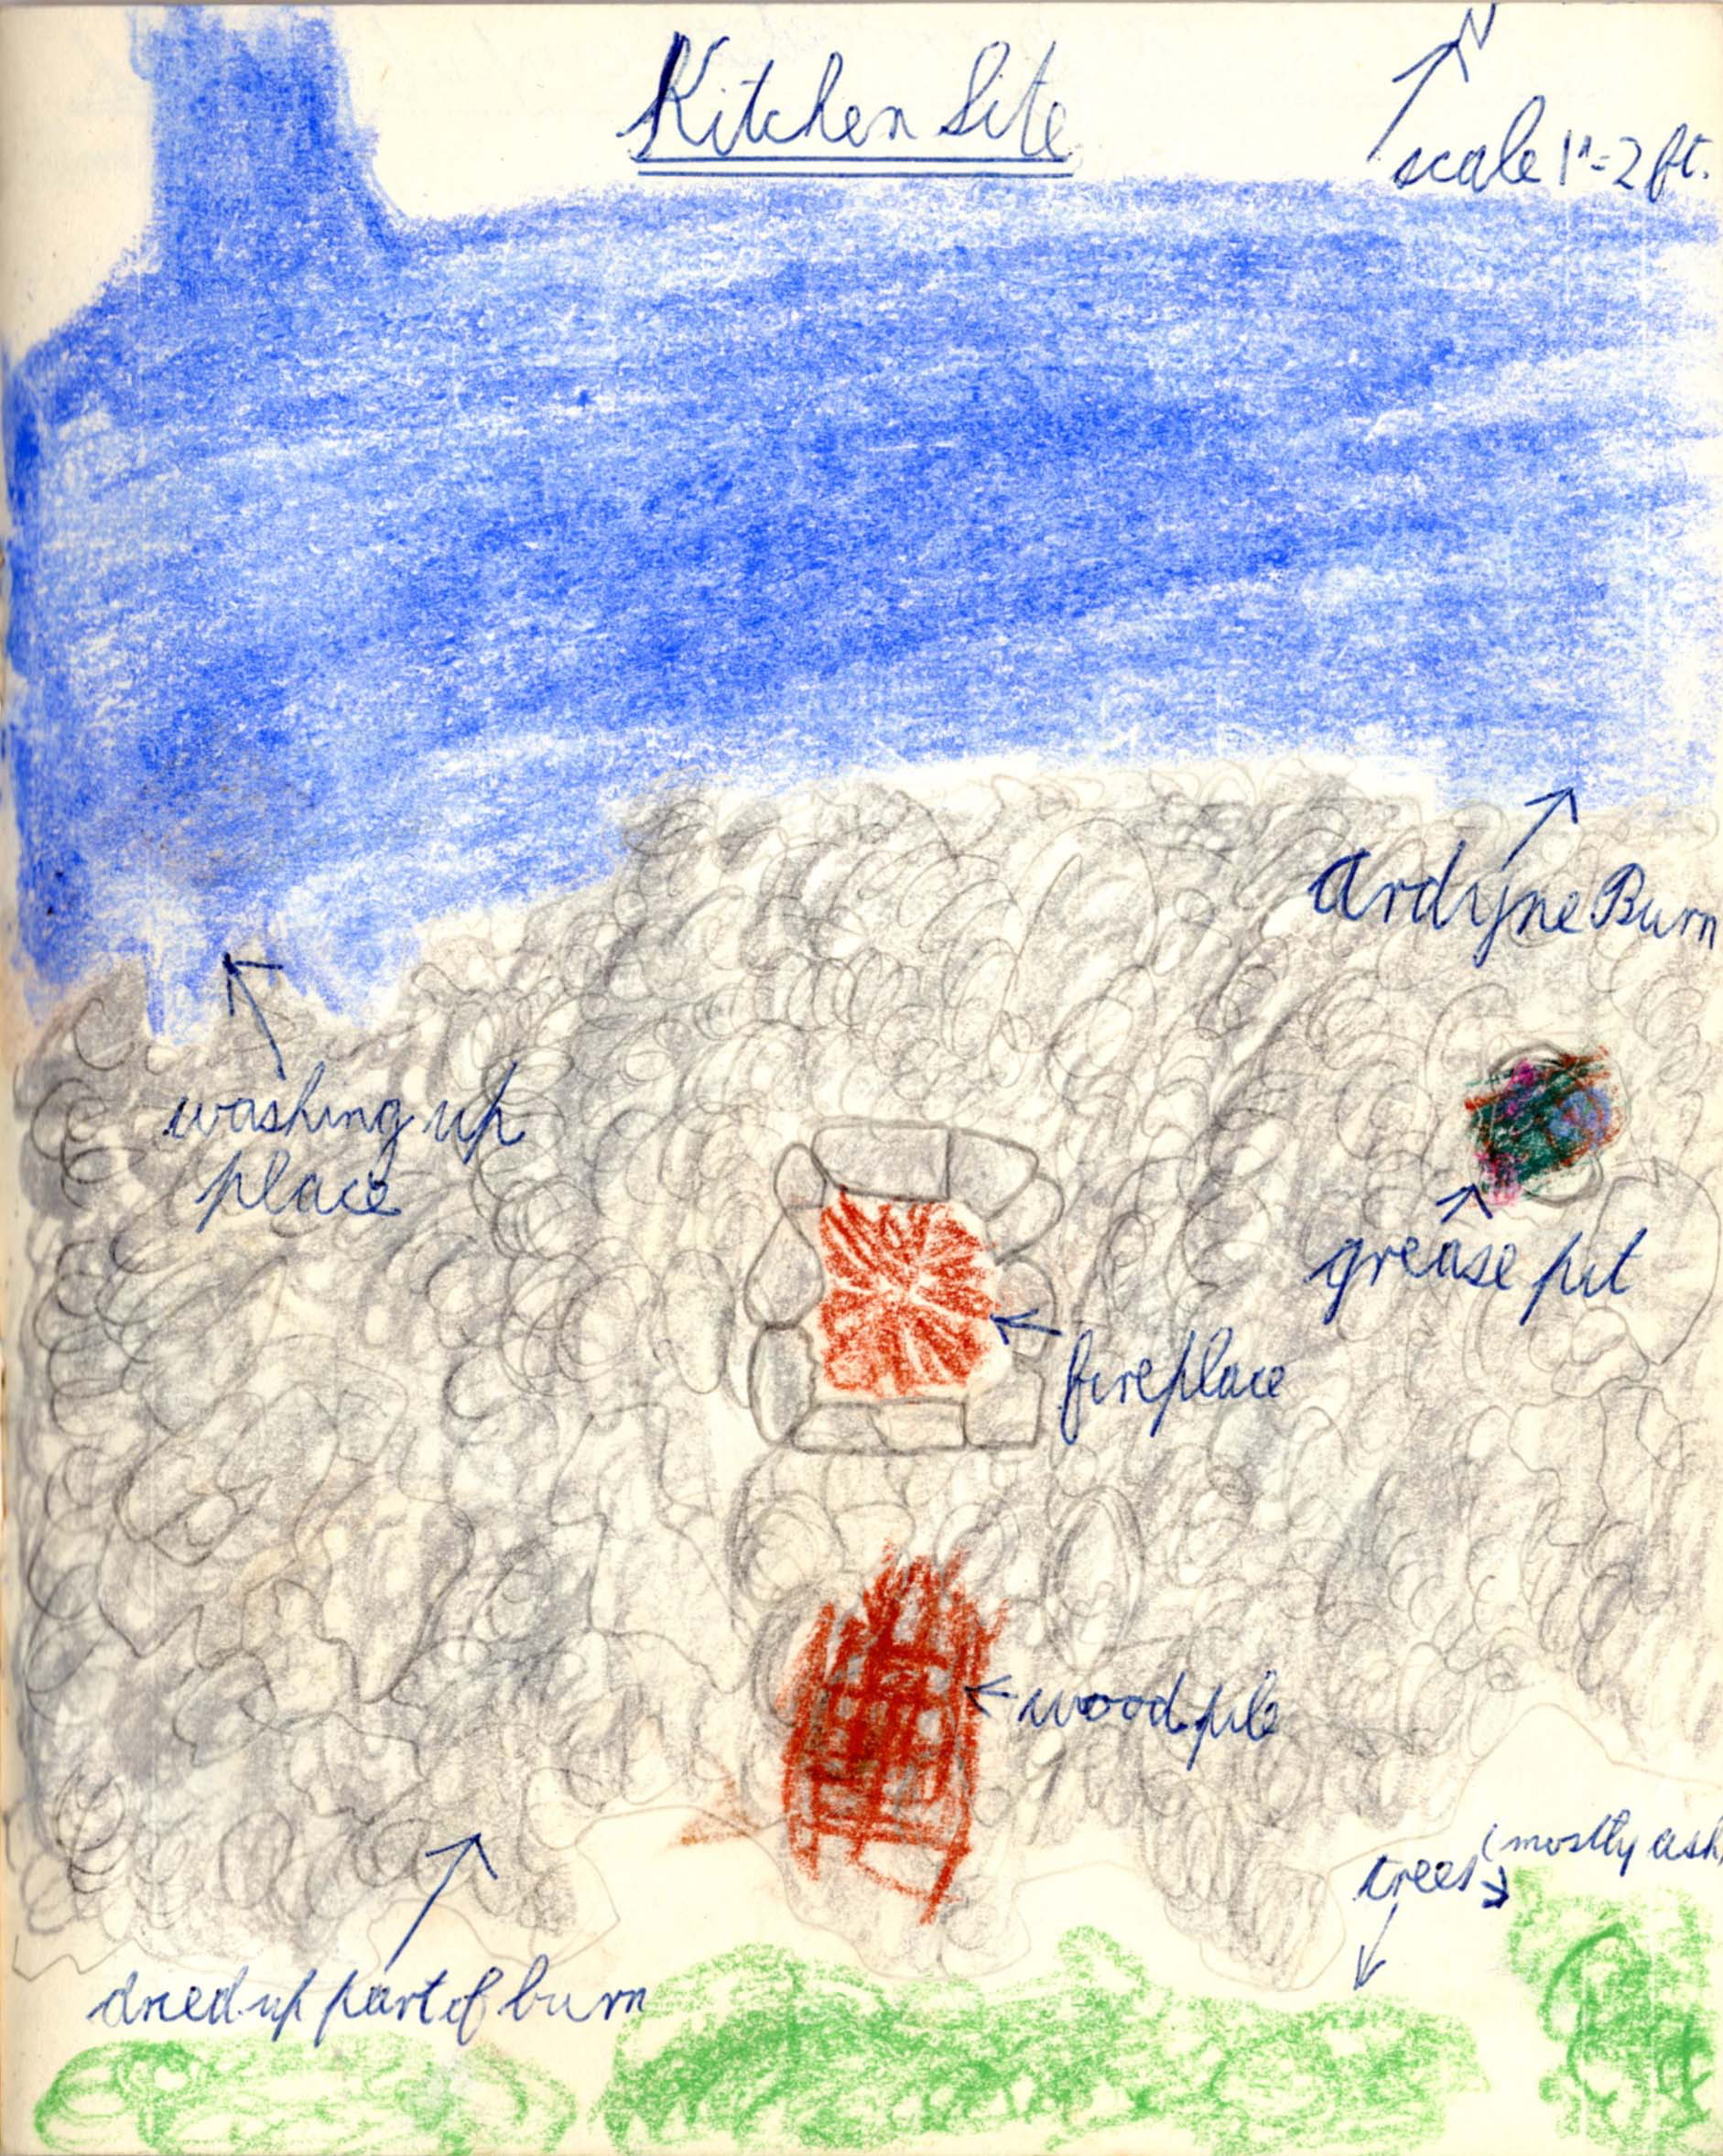 Kitchen Site
N
scale 1"=2ft.
Ardyne Burn
washing up
place
grease pit
fireplace
wood pile
(mostly ash)
trees
dried-up part of burn